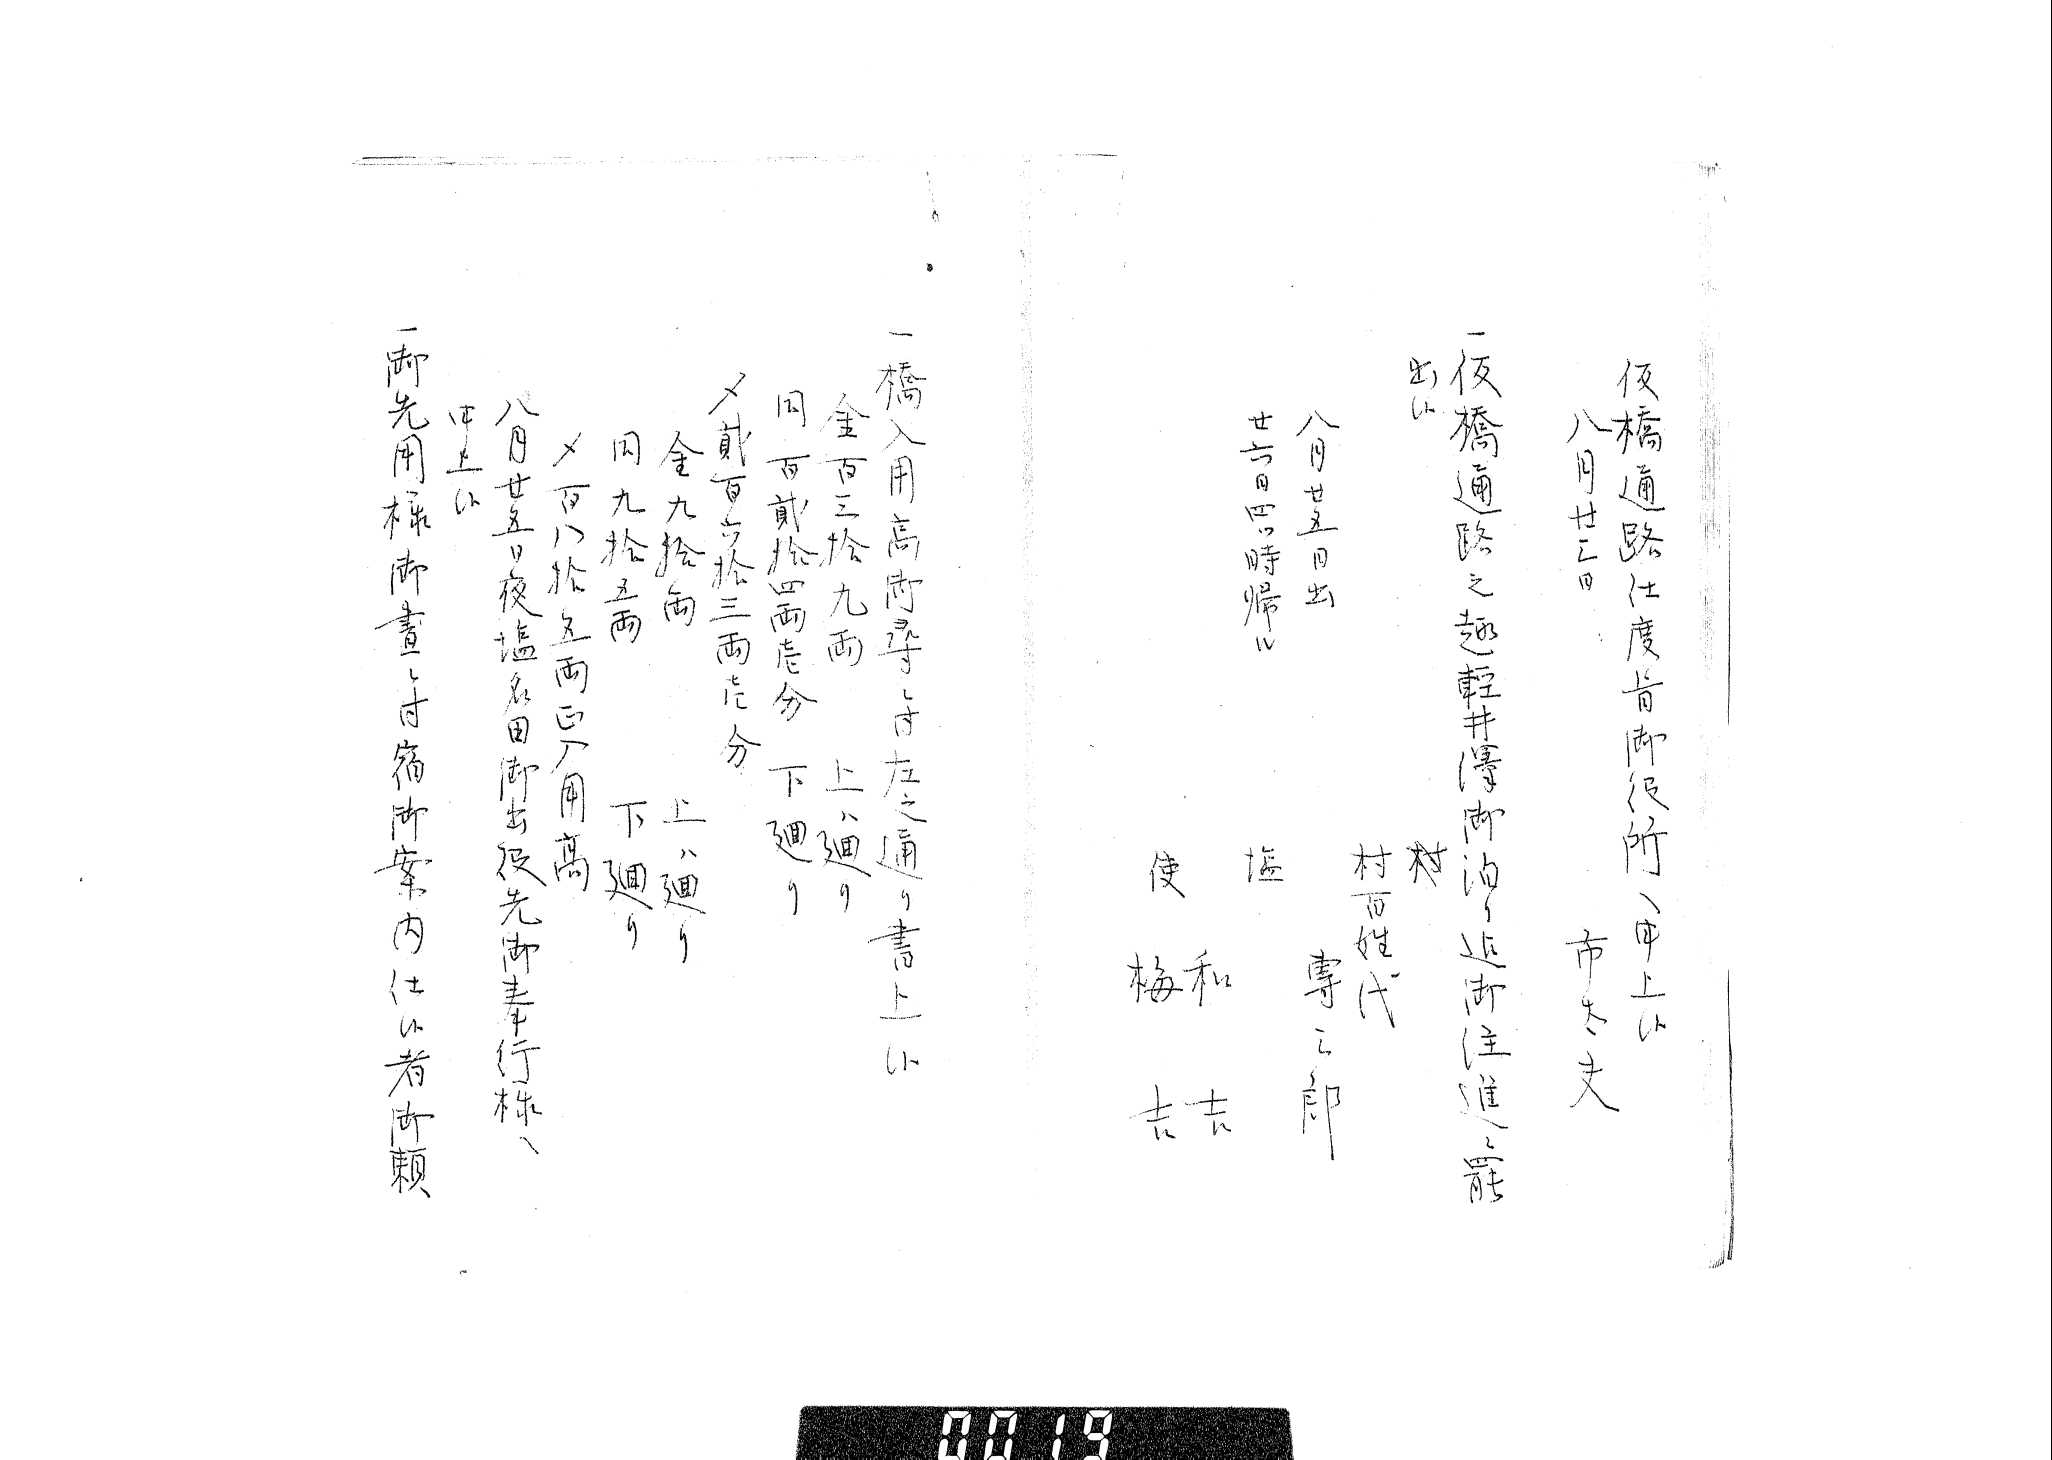 仮橋通路仕度旨御役所へ申上候
八月廿三日　市太夫
一仮橋通路之趣軽井澤御泊り迄御注進ニ罷
出候
村
村百姓代
八月廿五日出　専三郎
廿六日四ツ時帰ル　塩
和吉
使　梅吉
一橋入用高御尋ニ付左之通り書上候
金百三拾九両　上ハ廻り
同百貮拾四両壱分　下廻り
〆貮百六拾三両壱分
金九拾両　上ハ廻り
同九拾五両　下廻り
〆百八拾五両正入用高
八月廿五日夜塩名田御出役先御奉行様へ
申上候
一御先用様御晝ニ付宿御案内仕候者御頼
0019